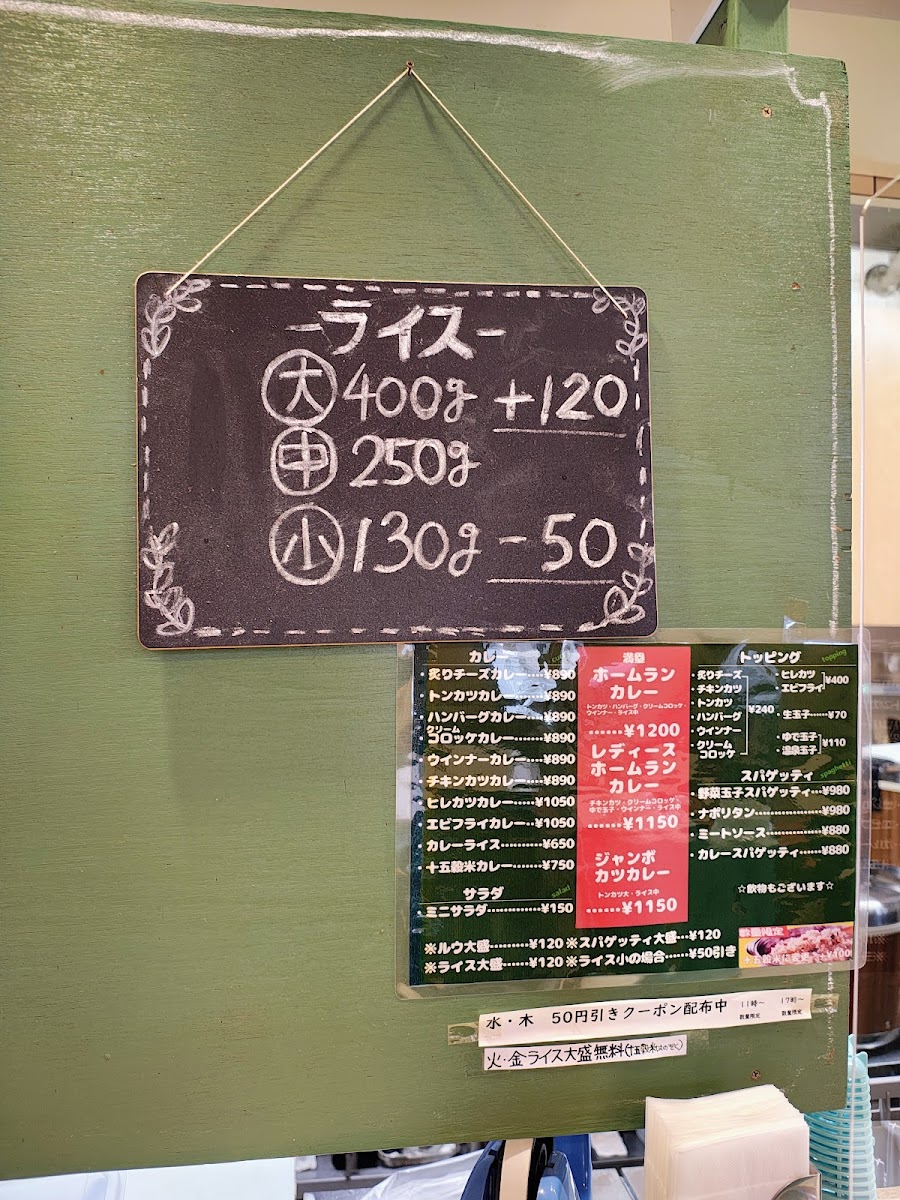 -ライス-
大 400g +120
中 250g
小 130g -50
カレー
・炙りチーズカレー····¥890
・トンカツカレー······¥890
・ハンバーグカレー····¥890
・クリームコロッケカレー····¥890
・ウインナーカレー····¥890
・チキンカツカレー····¥890
・ヒレカツカレー····¥1050
・エビフライカレー···¥1050
・カレーライス······¥650
・十五穀米カレー·····¥750
サラダ salad
・ミニサラダ·············¥150
満塁
ホームラン
カレー
トンカツ・ハンバーグ・クリームコロッケ・
ウインナー・ライス中
······¥1200
レディース
ホームラン
カレー
チキンカツ・クリームコロッケ・
ゆで玉子・ウインナー・ライス中
······¥1150
ジャンボ
カツカレー
トンカツ大・ライス中
······¥1150
トッピング topping
・炙りチーズ
・チキンカツ
・トンカツ
・ハンバーグ
・ウインナー
・クリームコロッケ
¥240
・ヒレカツ
・エビフライ
¥400
・生玉子······¥70
・ゆで玉子
・温泉玉子
¥110
スパゲッティ spaghetti
・野菜玉子スパゲッティ···¥980
・ナポリタン··············¥980
・ミートソース···········¥880
・カレースパゲッティ······¥880
☆飲物もございます☆
※ルウ大盛·········¥120 ※スパゲッティ大盛···¥120
※ライス大盛······¥120 ※ライス小の場合······¥50引き
数量限定
十五穀米に変更 +¥100
水・木 50円引きクーポン配布中 11時～ 17時～
数量限定 数量限定
火・金ライス大盛無料(十五穀米はのぞく)